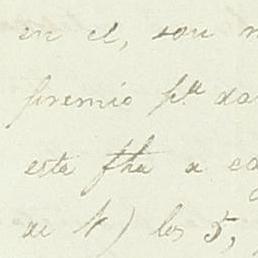 en el, son
premio p.ª da
esta fha a
de N) los 5,